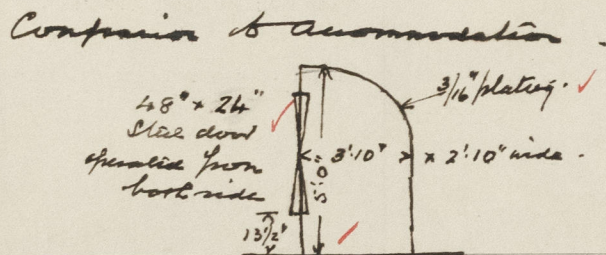 Companion to Accommodation
3/16" plating.
48" × 24"
Steel door
operated from
both sides
3'·10" × 2'·10" wide.
5'·0"
13½"